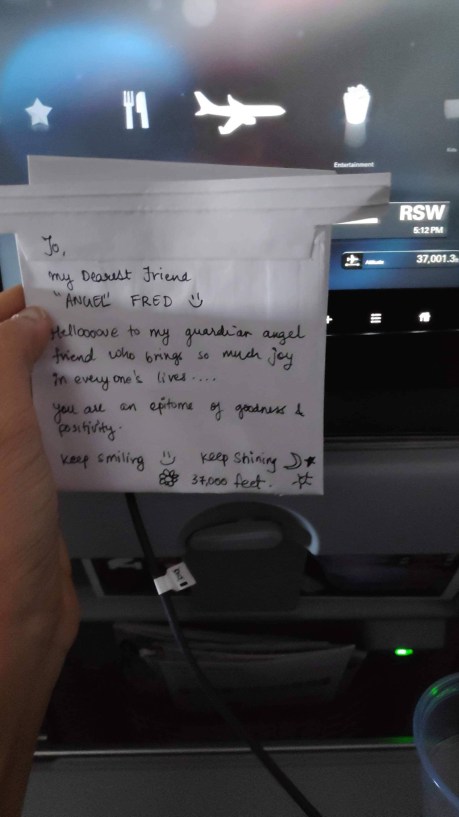 Entertainment
RSW
5:12 PM
Altitude
37,001.3
To,
my Dearest Friend
"ANGEL" FRED
Helloooove to my guardian angel
friend who brings so much joy
in everyone's lives....
you are an epitome of goodness &
positivity.
keep smiling keep shining
37,000 feet.